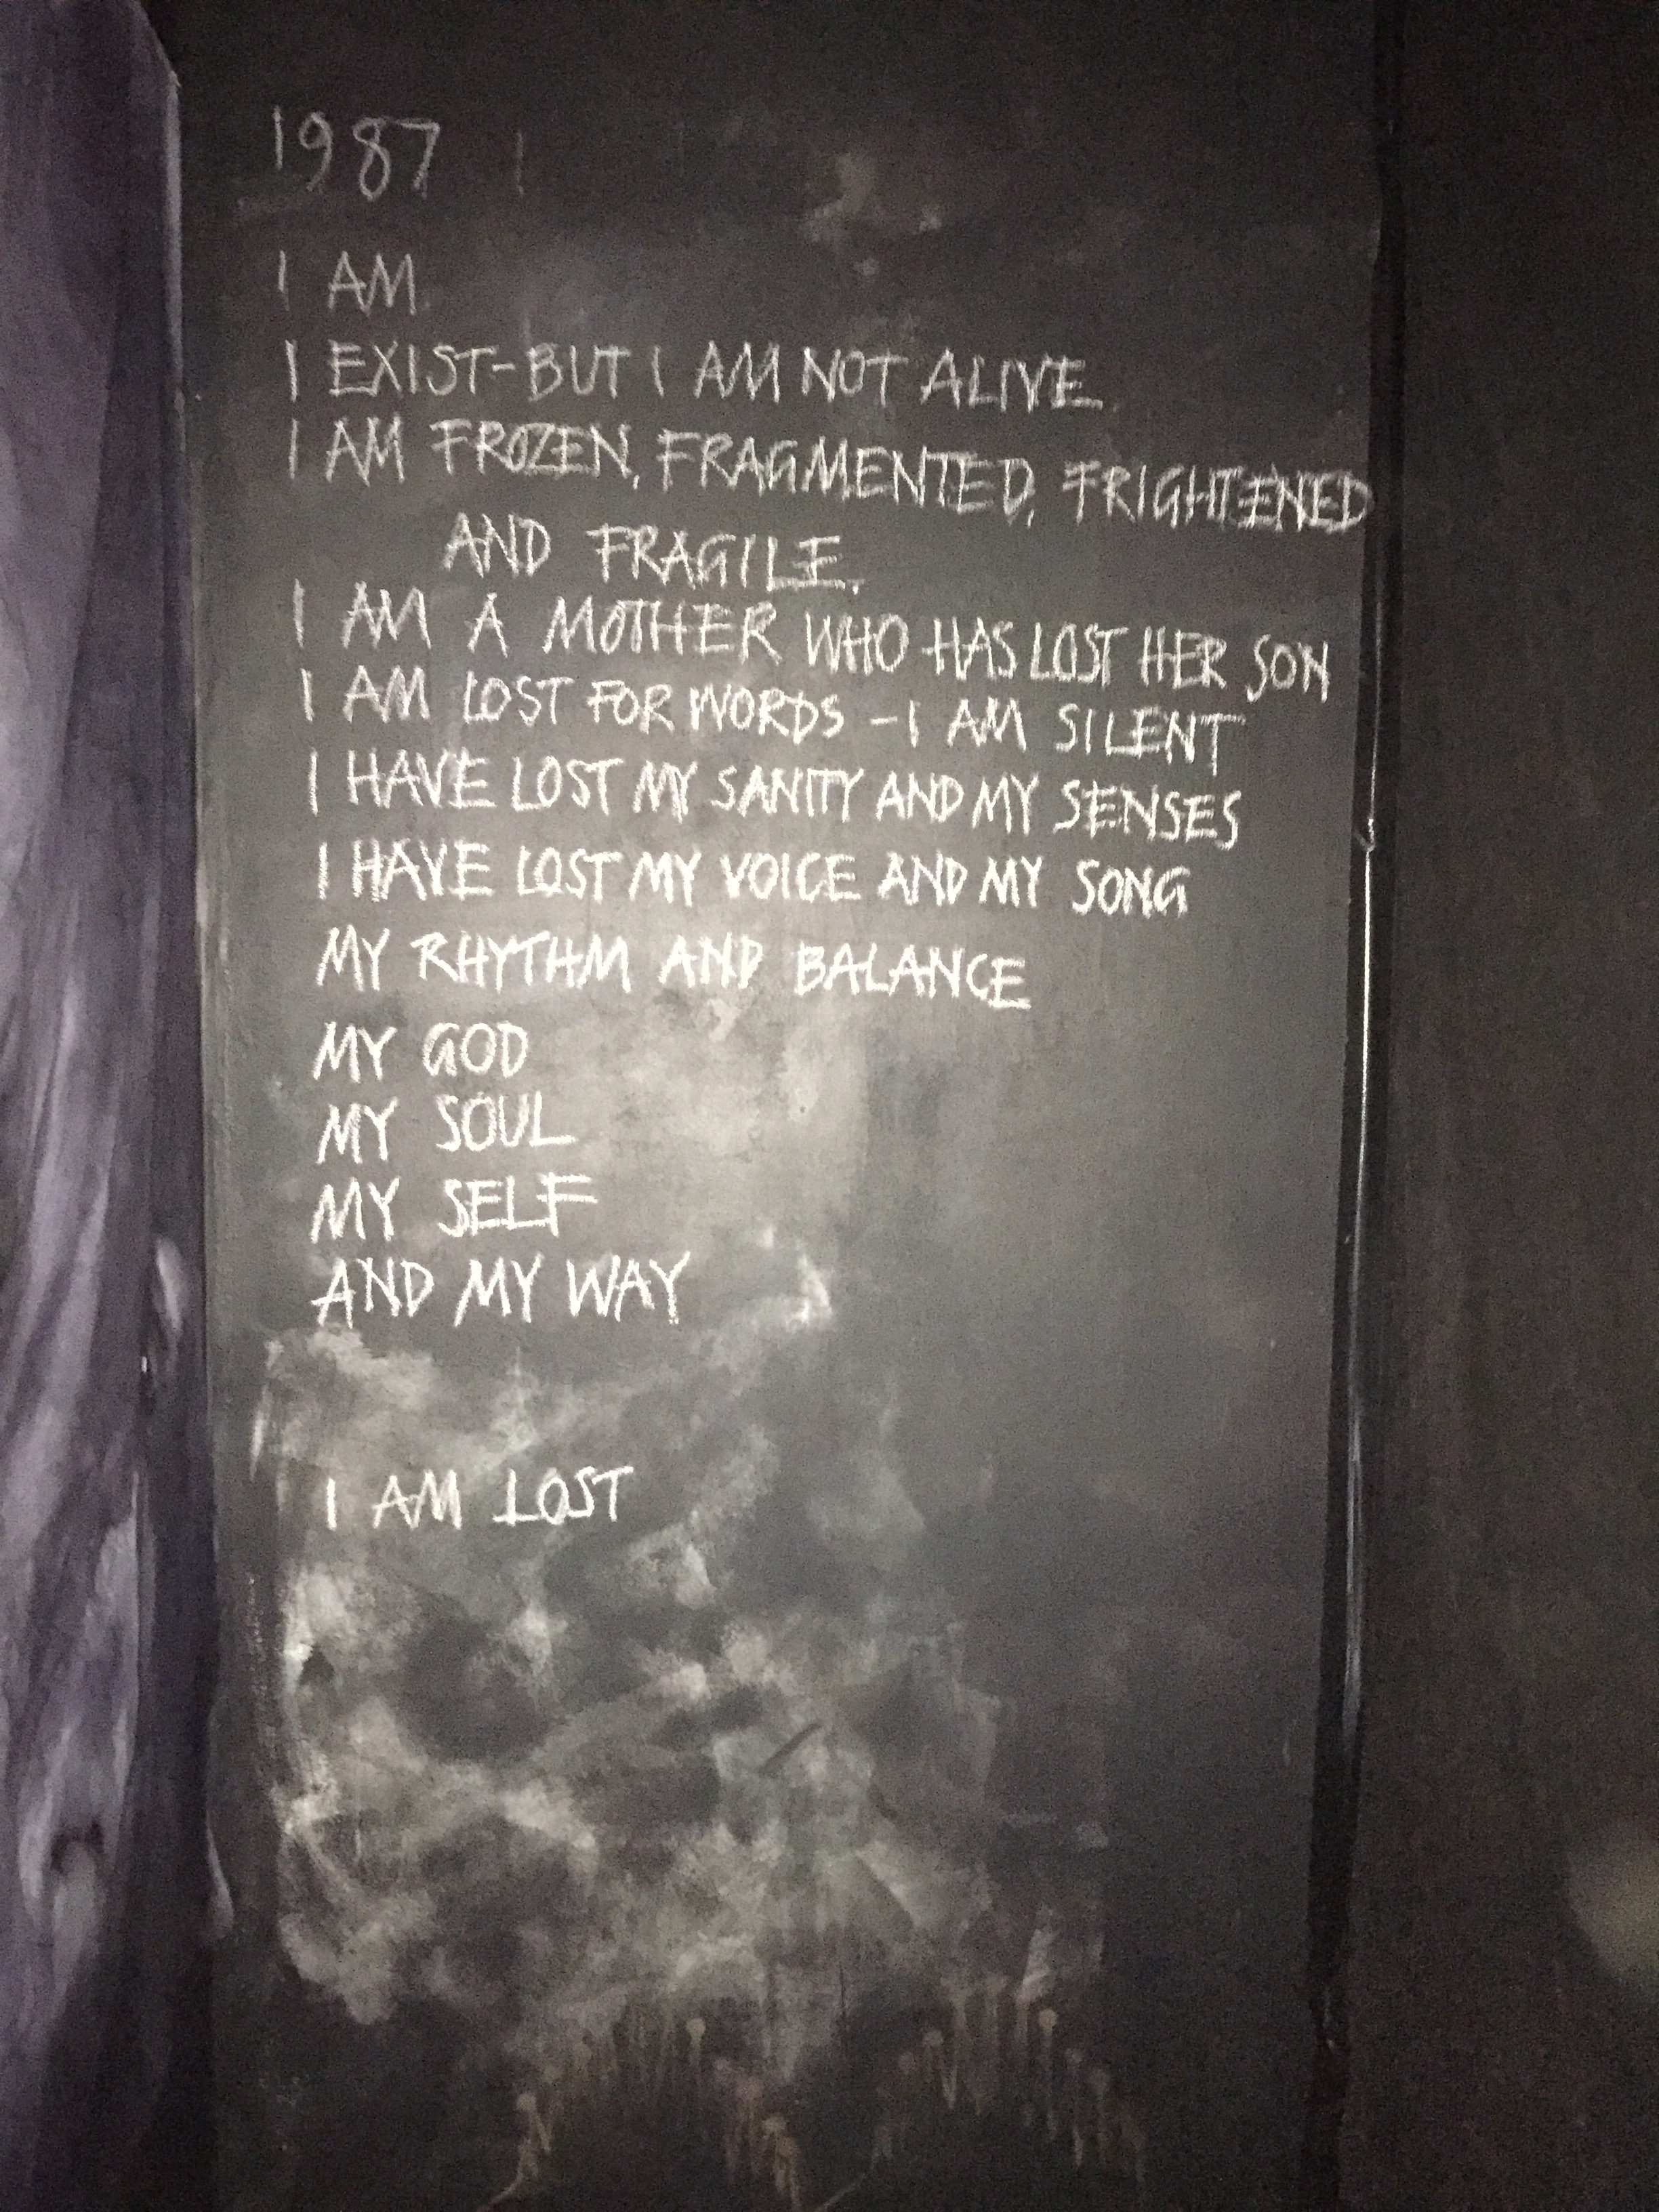 1987
I AM
I EXIST-BUT I AM NOT ALIVE
I AM FROZEN, FRAGMENTED, FRIGHTENED
AND FRAGILE.
I AM A MOTHER WHO HAS LOST HER SON
I AM LOST FOR WORDS - I AM SILENT
I HAVE LOST MY SANITY AND MY SENSES
I HAVE LOST MY VOICE AND MY SONG
MY RHYTHM AND BALANCE
MY GOD
MY SOUL
MY SELF
AND MY WAY
I AM LOST